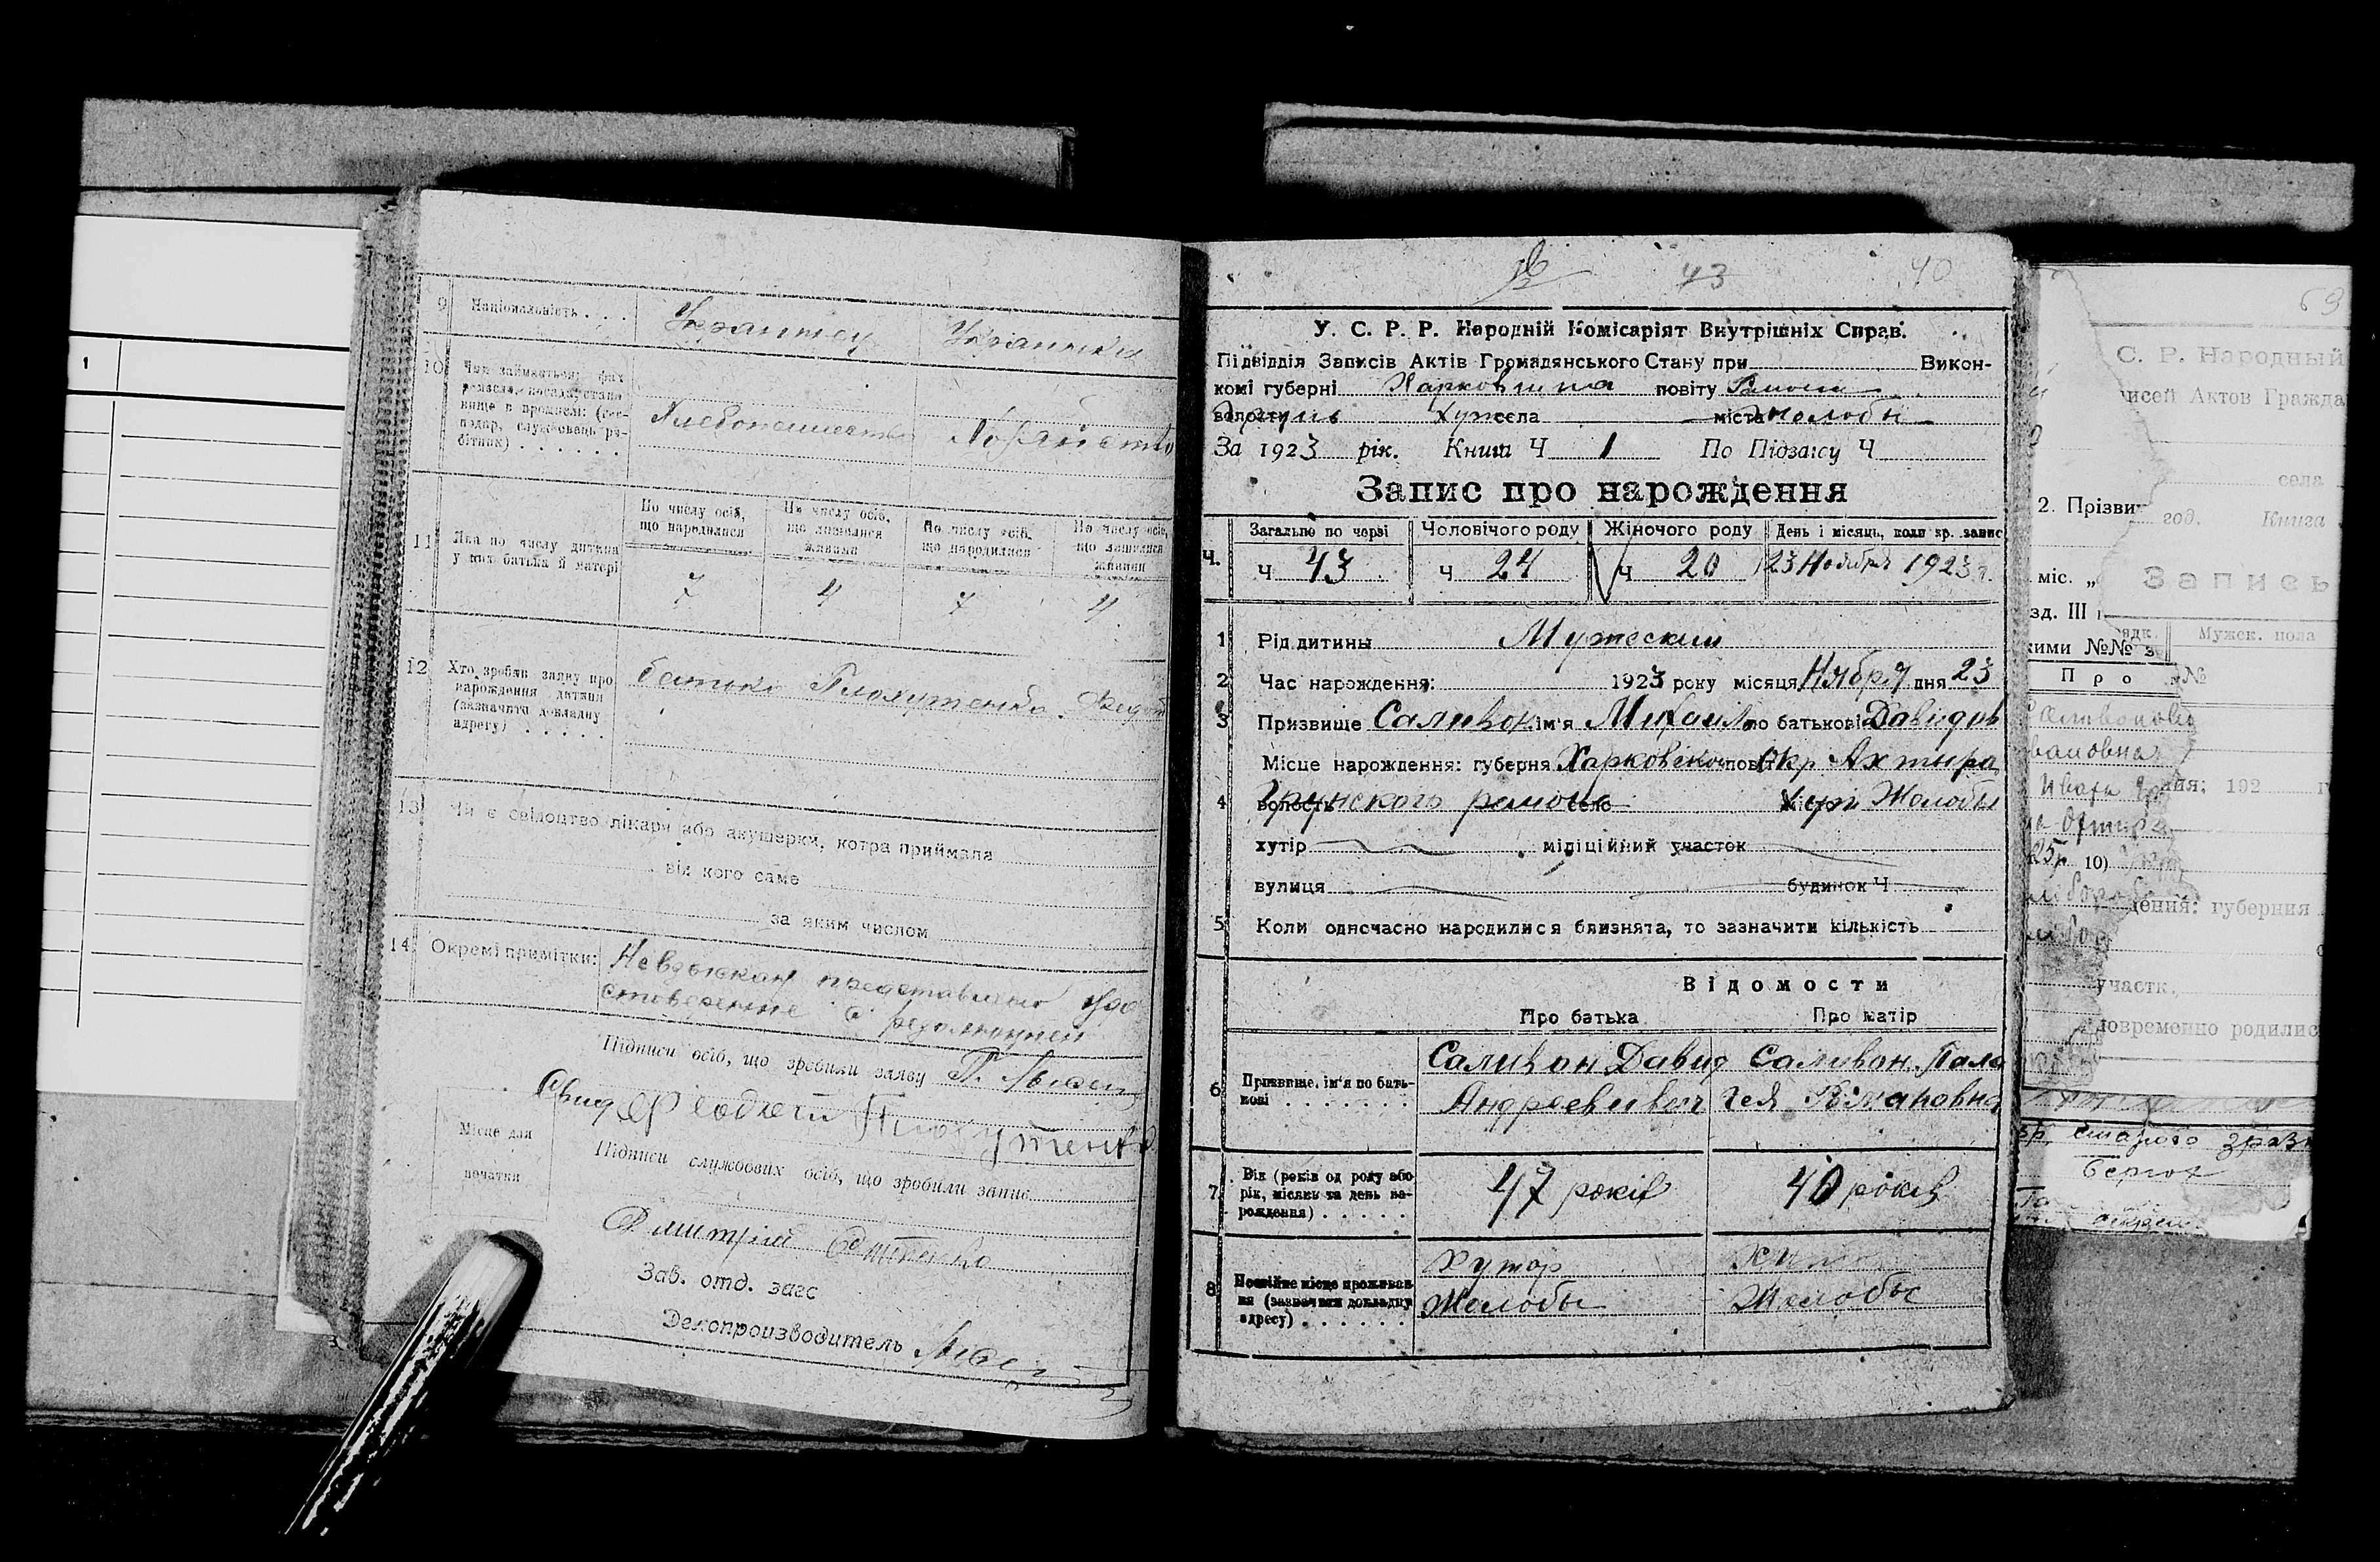 9 Національність . . . Украинец Украинка
10 Чим займається: фах
ремесло, посада, стано-
вище в промислі: (гос-
подар, службовець ро-
бітник) . . . . . .
Хлебопашество Хозяйство
11 Яка по числу дитина
у цих батька й матері
По числу осіб,
що народилися
По числу осіб,
що лишилися
живими
По числу осіб,
що народилися
По числу осіб,
що лишилися
живими
7 4 7 4
12 Хто зробив заяву про
народження дитини
(зазначити докладну
адресу) . . . . .
батько Плохутенко Федот
13 Чи є свідоцтво лікаря або акушерки, котра приймала
від кого саме
за яким числом
14 Окремі примітки:
представлено удо
стоверение с резолюцией
Підписи осіб, що зробили заяву
Плохутенко
Місце для
печатки
Підписи службових осіб, що зробили запис
Дмитрий
Зав. отд. загс
Делопроизводитель
43 40
У. С. Р. Р. Народній Комісаріят Внутрішніх Справ.
Підвідділ Записів Актів Громадянського Стану при Викон-
комі губерні Харковщина повіту
волости Грунь Хут села міста Жолобы
За 1923 рік. Книга Ч 1 По Підзагсу Ч
Запис про народження
Загальне по черзі Чоловічого роду Жіночого роду День і місяць, коли зр. запис
Ч. Ч 43 Ч 24 Ч 20 23 Ноября 1923 г.
1 Рід дитины Мужеский
2 Час нарождення: 1923 року місяця Нября дня 23
3 Призвище Саливон ім'я Михаил по батькові Давидов
Місце нарождення: губерня Харковской повіт Окр Ахтыра
4 волость Грунского район села місто Хут Жолобы
хутір міліційний участок
вулиця будинок Ч
5 Коли одночасно народилися близнята, то зазначити кількість
Відомости
Про батька Про матір
6 Призвище, ім'я по бать-
кові . . . . . . .
Саливон Давид Саливон Пала
Андреевич гея Романовна
7 Вік (років од роду або
рік, місяць та день на-
рождення) . . . . .
47 років 40 років
8 Постійне місце проживан-
ня (зазначити докладну
адресу) . . . . . .
Хутор Хут
Жолобы Жолобы
1
69
С. Р. Народный
исей Актов Гражда
села
2. Прізви
год. Книга
міс. „
Запись
зд. III
Мужск. пола
ими №№
Про №
ия: 192
10)
дения: губерния
участк.
новременно родилис
старого зразк